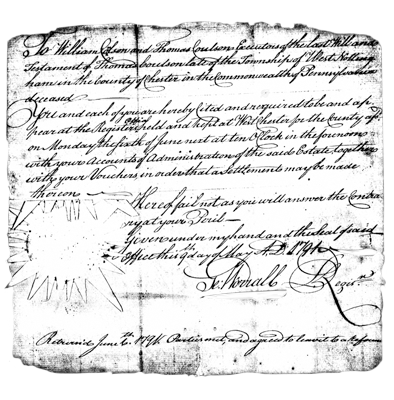 To William Coson and Thomas Coulson Executors of the last Will and
Testament of Thomas Coulson late of the Township of West Notting
ham in the County of Chester in the Commonwealth of Pennsylvania
deceased
You and each of you are hereby Cited and required to be and ap
pear at the Registers office held and kept at West Chester for the County afsd
on Monday the of June next at ten O'Clock in the forenoon
with your Accounts of Administration of the said Estate together
with your Vouchers, in order that a Settlement may be made
thereon
Hereof fail not as you will answer the Contra
ry at your Peril
Given under my hand and the Seal of said
office this 9th day of May A.D. 1794
Jo. Regisr
Returnd June 1794 Parties met, and agreed to leave it to a